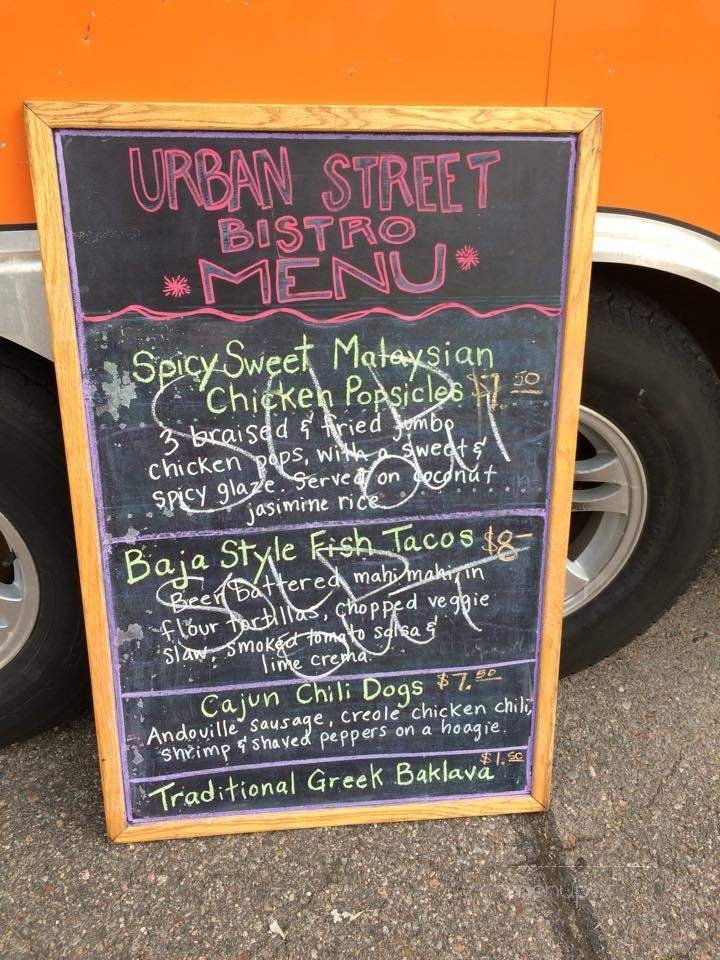 URBAN STREET
BISTRO
MENU
Spicy Sweet Malaysian
Chicken Popsicles $7.50
3 braised & fried jumbo
chicken pops, with a sweet &
spicy glaze. Served on coconut
jasimine rice
SOLD
Out
Baja Style Fish Tacos $8-
Beer battered mahi mahi, in
flour tortillas, chopped veggie
slaw, smoked tomato salsa &
lime crema.
SOLD
OUT
Cajun Chili Dogs $7.50
Andouille sausage, creole chicken chili,
shrimp & shaved peppers on a hoagie.
$1.50
Traditional Greek Baklava